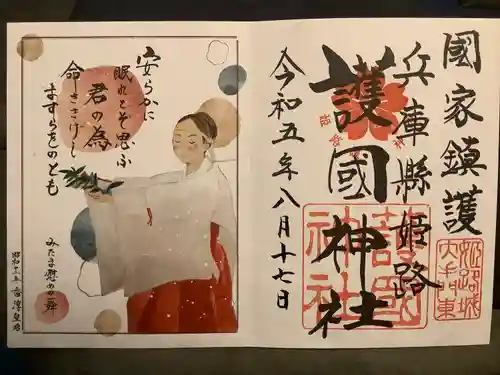 國家鎮護
兵庫縣姫路
護國神社
令和五年八月十七日
護國
神社
姫路城
大手東
安らかに
眠れとぞ思ふ
君の為
命さゝげし
ますらをのとも
みたま慰めの舞
昭和十三年 香淳皇后